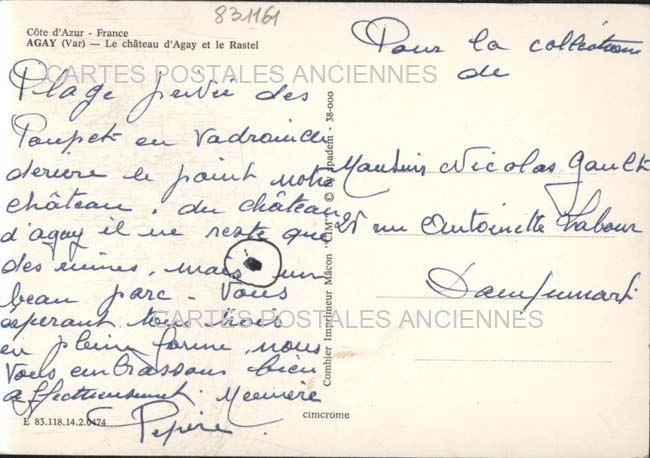 831161
Côte d'Azur - France
AGAY (Var) — Le château d'Agay et le Rastel
Pour la collection
de
CARTES POSTALES ANCIENNES
Plage privée des
Poupet en Vadrouille
derière le point notre
château. du château
d'agay il ne reste que
des ruines, mais un
beau parc - Vous
esperant tous trois
en pleine forme, nous
Vous embrassons bien
affectueusement. Mémère
Pépère.
Monsieur Nicolas Gault
25 rue Antoinette
CARTES POSTALES ANCIENNES
Combier Imprimeur Mâcon "CIM" © by spadem - 38-000
cimcrome
E 83.118.14.2.0474